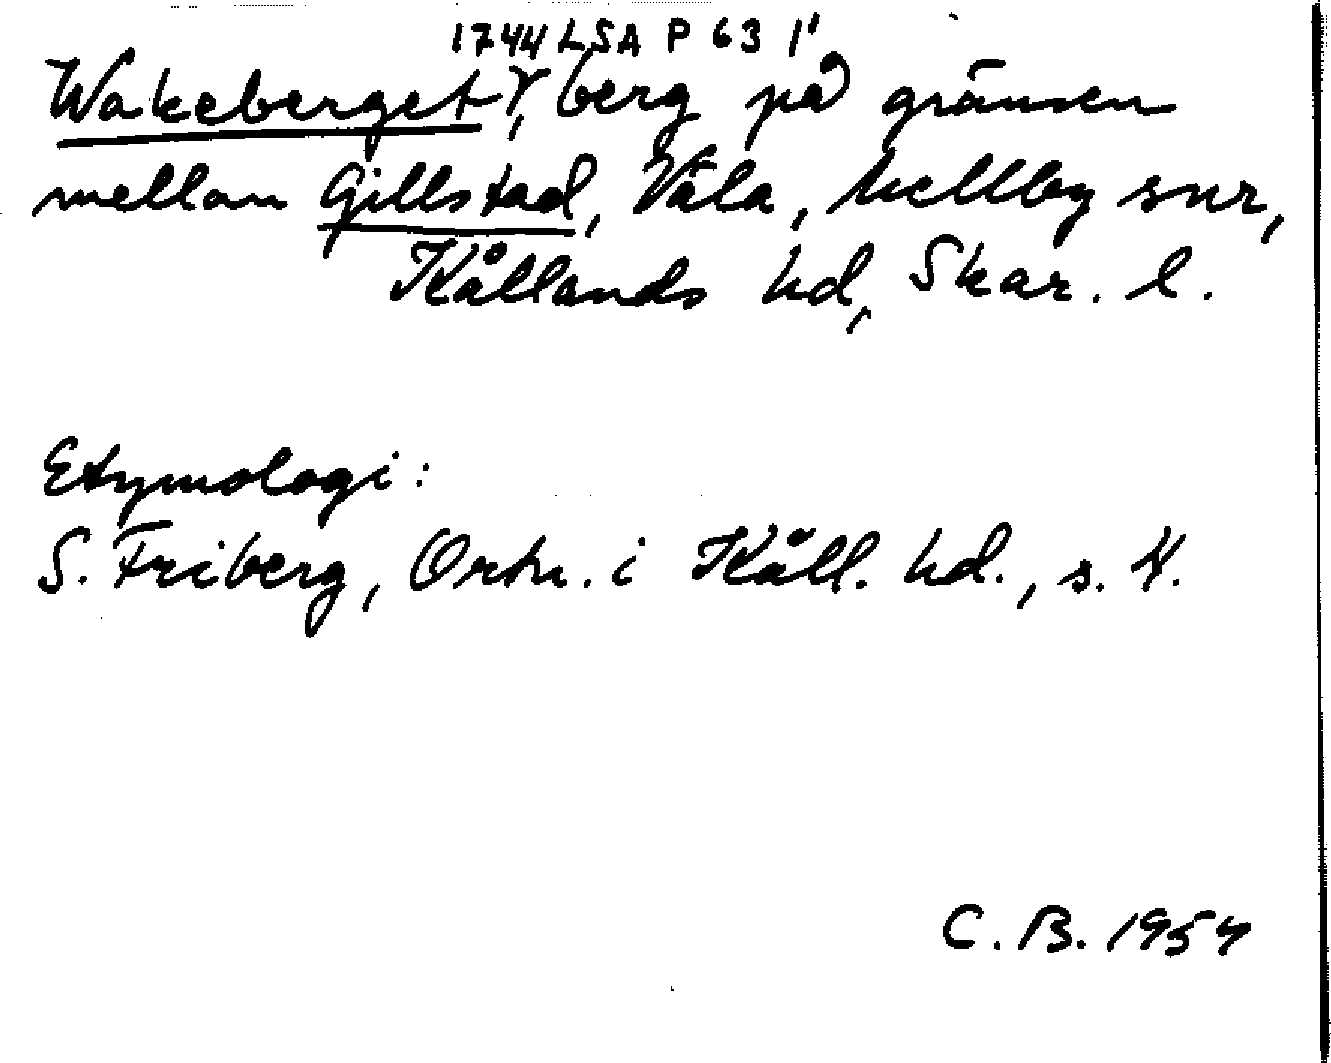 1744 LSA P 63 1'
Wakeberget, berg på gränsen
mellan Gillstad, Väla, Mellby snr,
Kållands hd, Skar. l.
Etymologi:
S. Friberg, Ortn. i Kåll. hd., s.
C. B. 1954